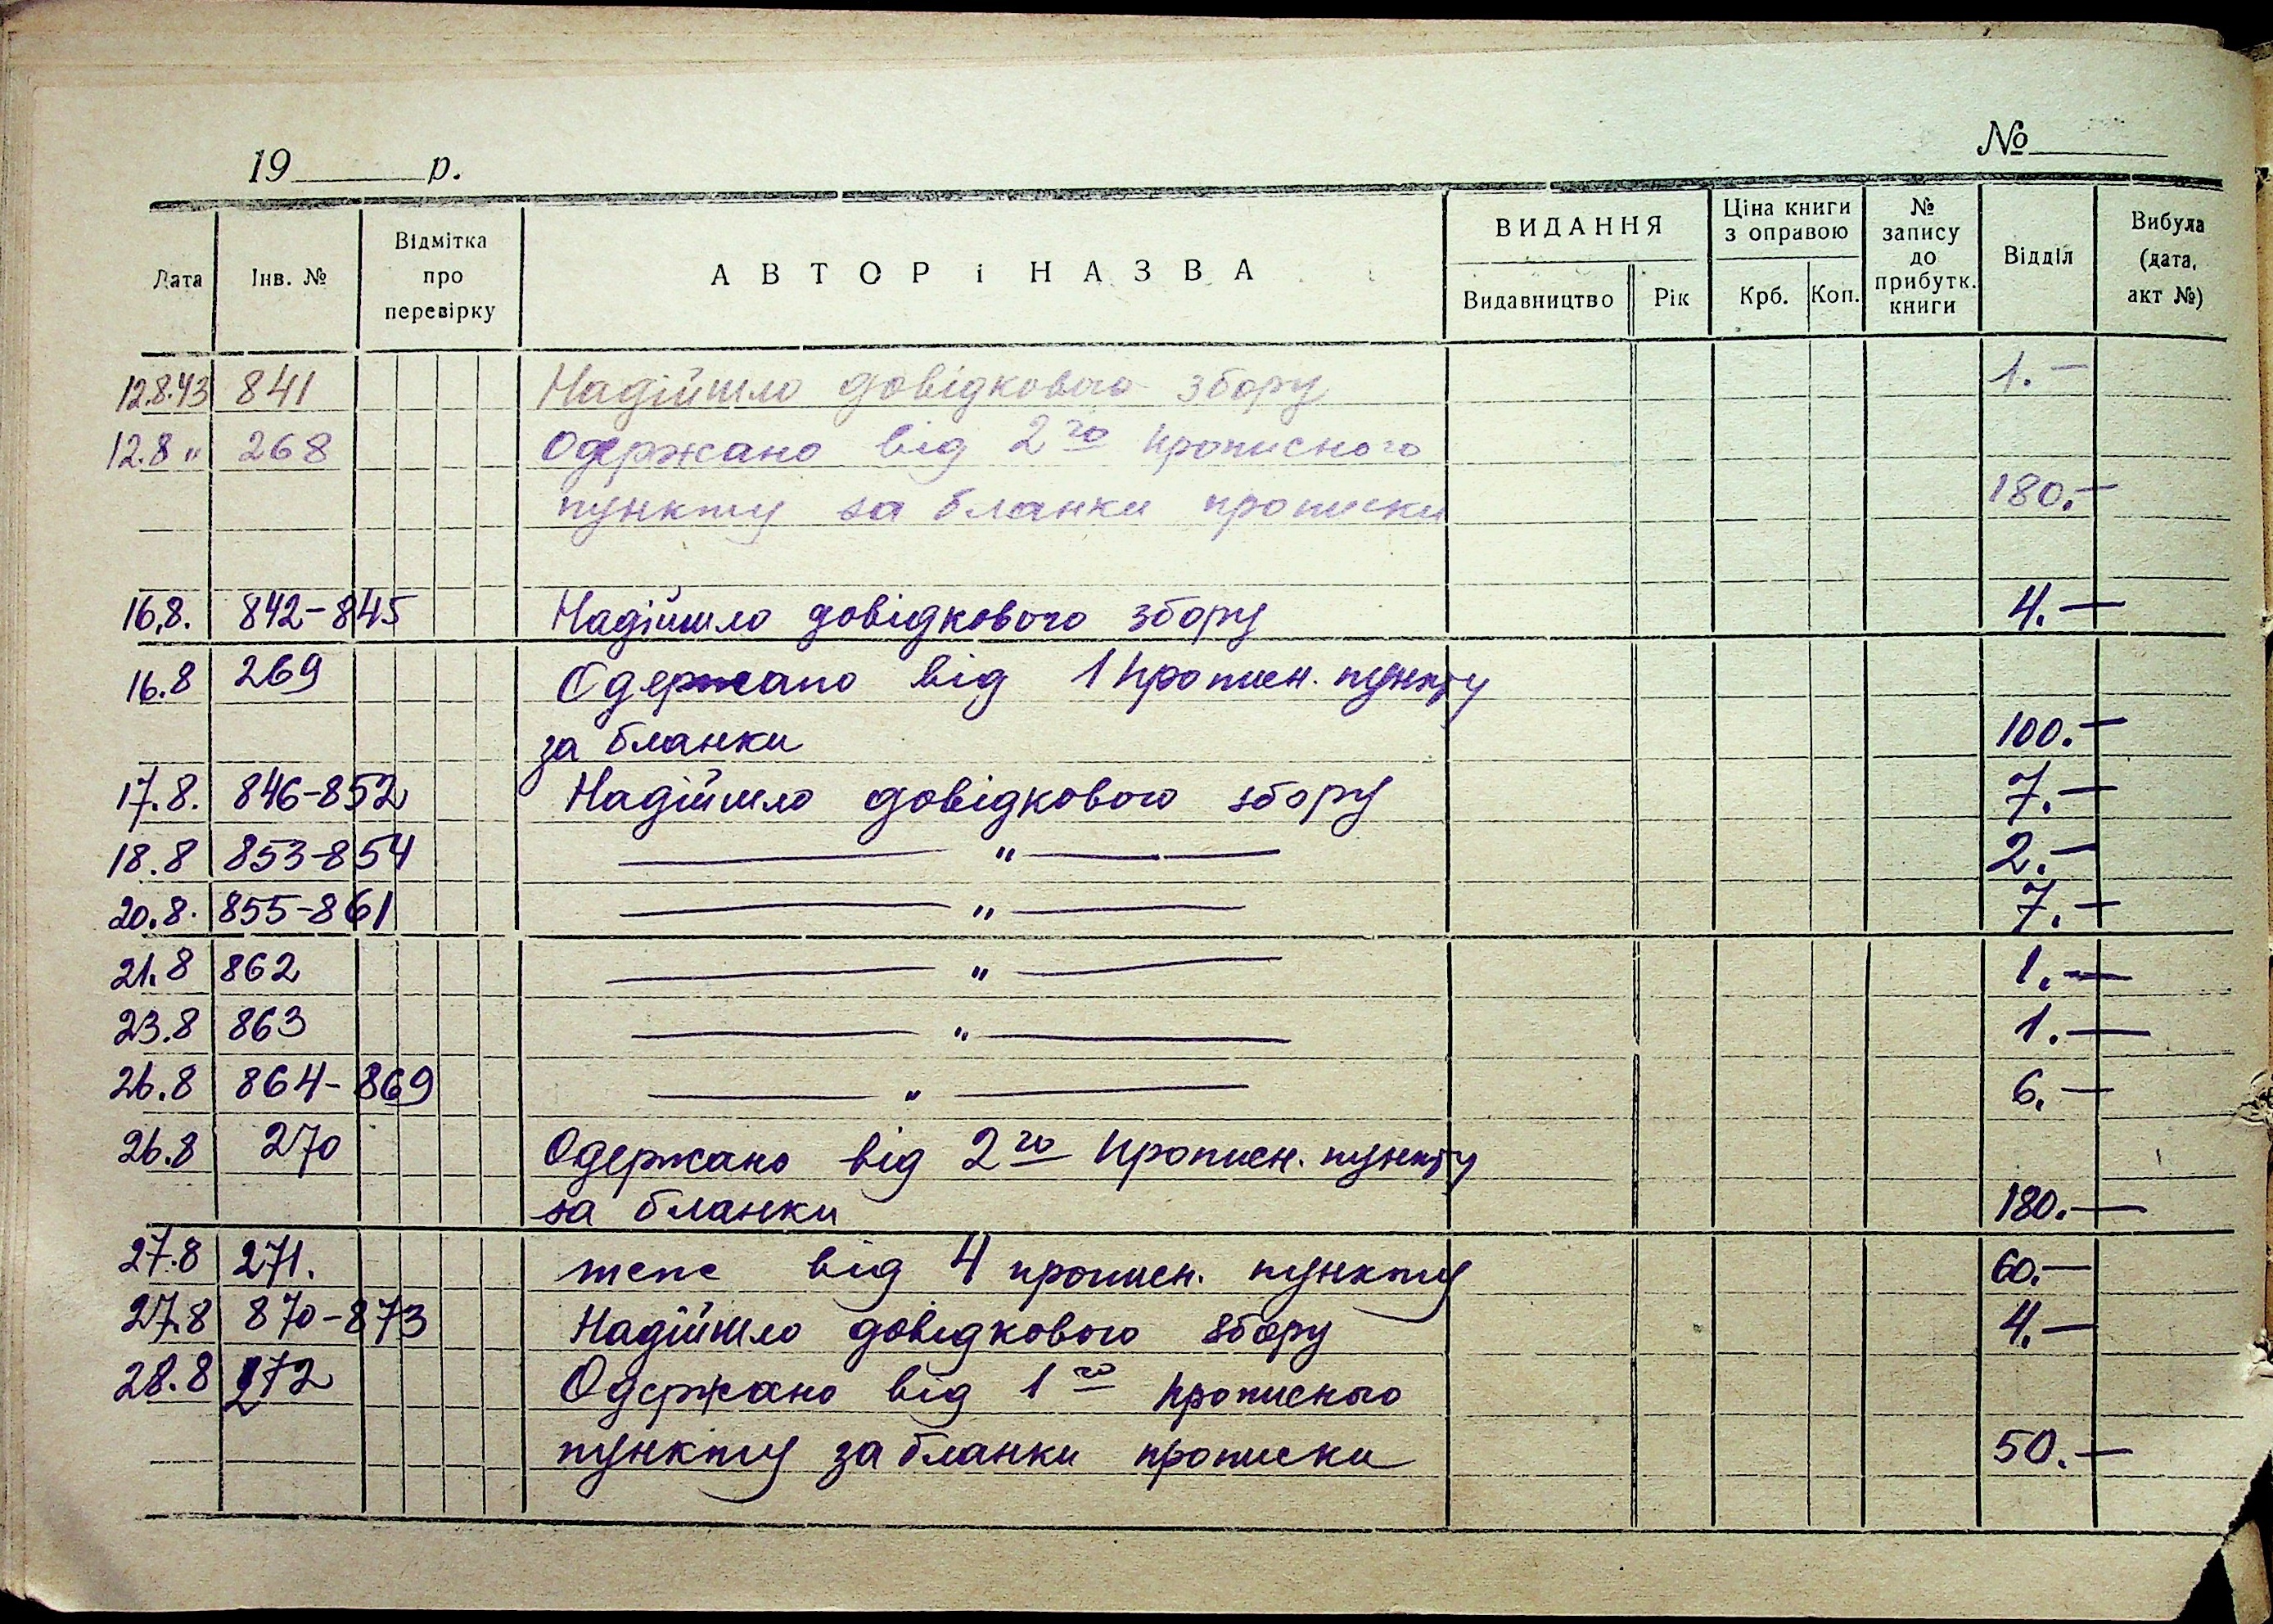 19 р.
№
Дата Інв. № Відмітка про перевірку АВТОР і НАЗВА ВИДАННЯ Видавництво Рік Ціна книги з оправою Крб. Коп. № запису до прибутк. книги Відділ Вибула (дата, акт №)
12.8.43 841 Надійшло довідкового збору 1.—
12.8 " 268 Одержано від 2го прописного
пункту за бланки прописки 180.—
16.8. 842-845 Надійшло довідкового збору 4.—
16.8 269 Одержано від 1 прописн. пункту
за бланки 100.—
17.8. 846-852 Надійшло довідкового збору 7.—
18.8 853-854 — " — 2.—
20.8. 855-861 — " — 7.—
21.8 862 — " — 1.—
23.8 863 — " — 1.—
26.8 864-869 — " — 6.—
26.8 270 Одержано від 2го прописн. пункту
за бланки 180.—
27.8 271. теже від 4 прописн. пункту 60.—
27.8 870-873 Надійшло довідкового збору 4.—
28.8 272 Одержано від 1го прописного
пункту за бланки прописки 50.—